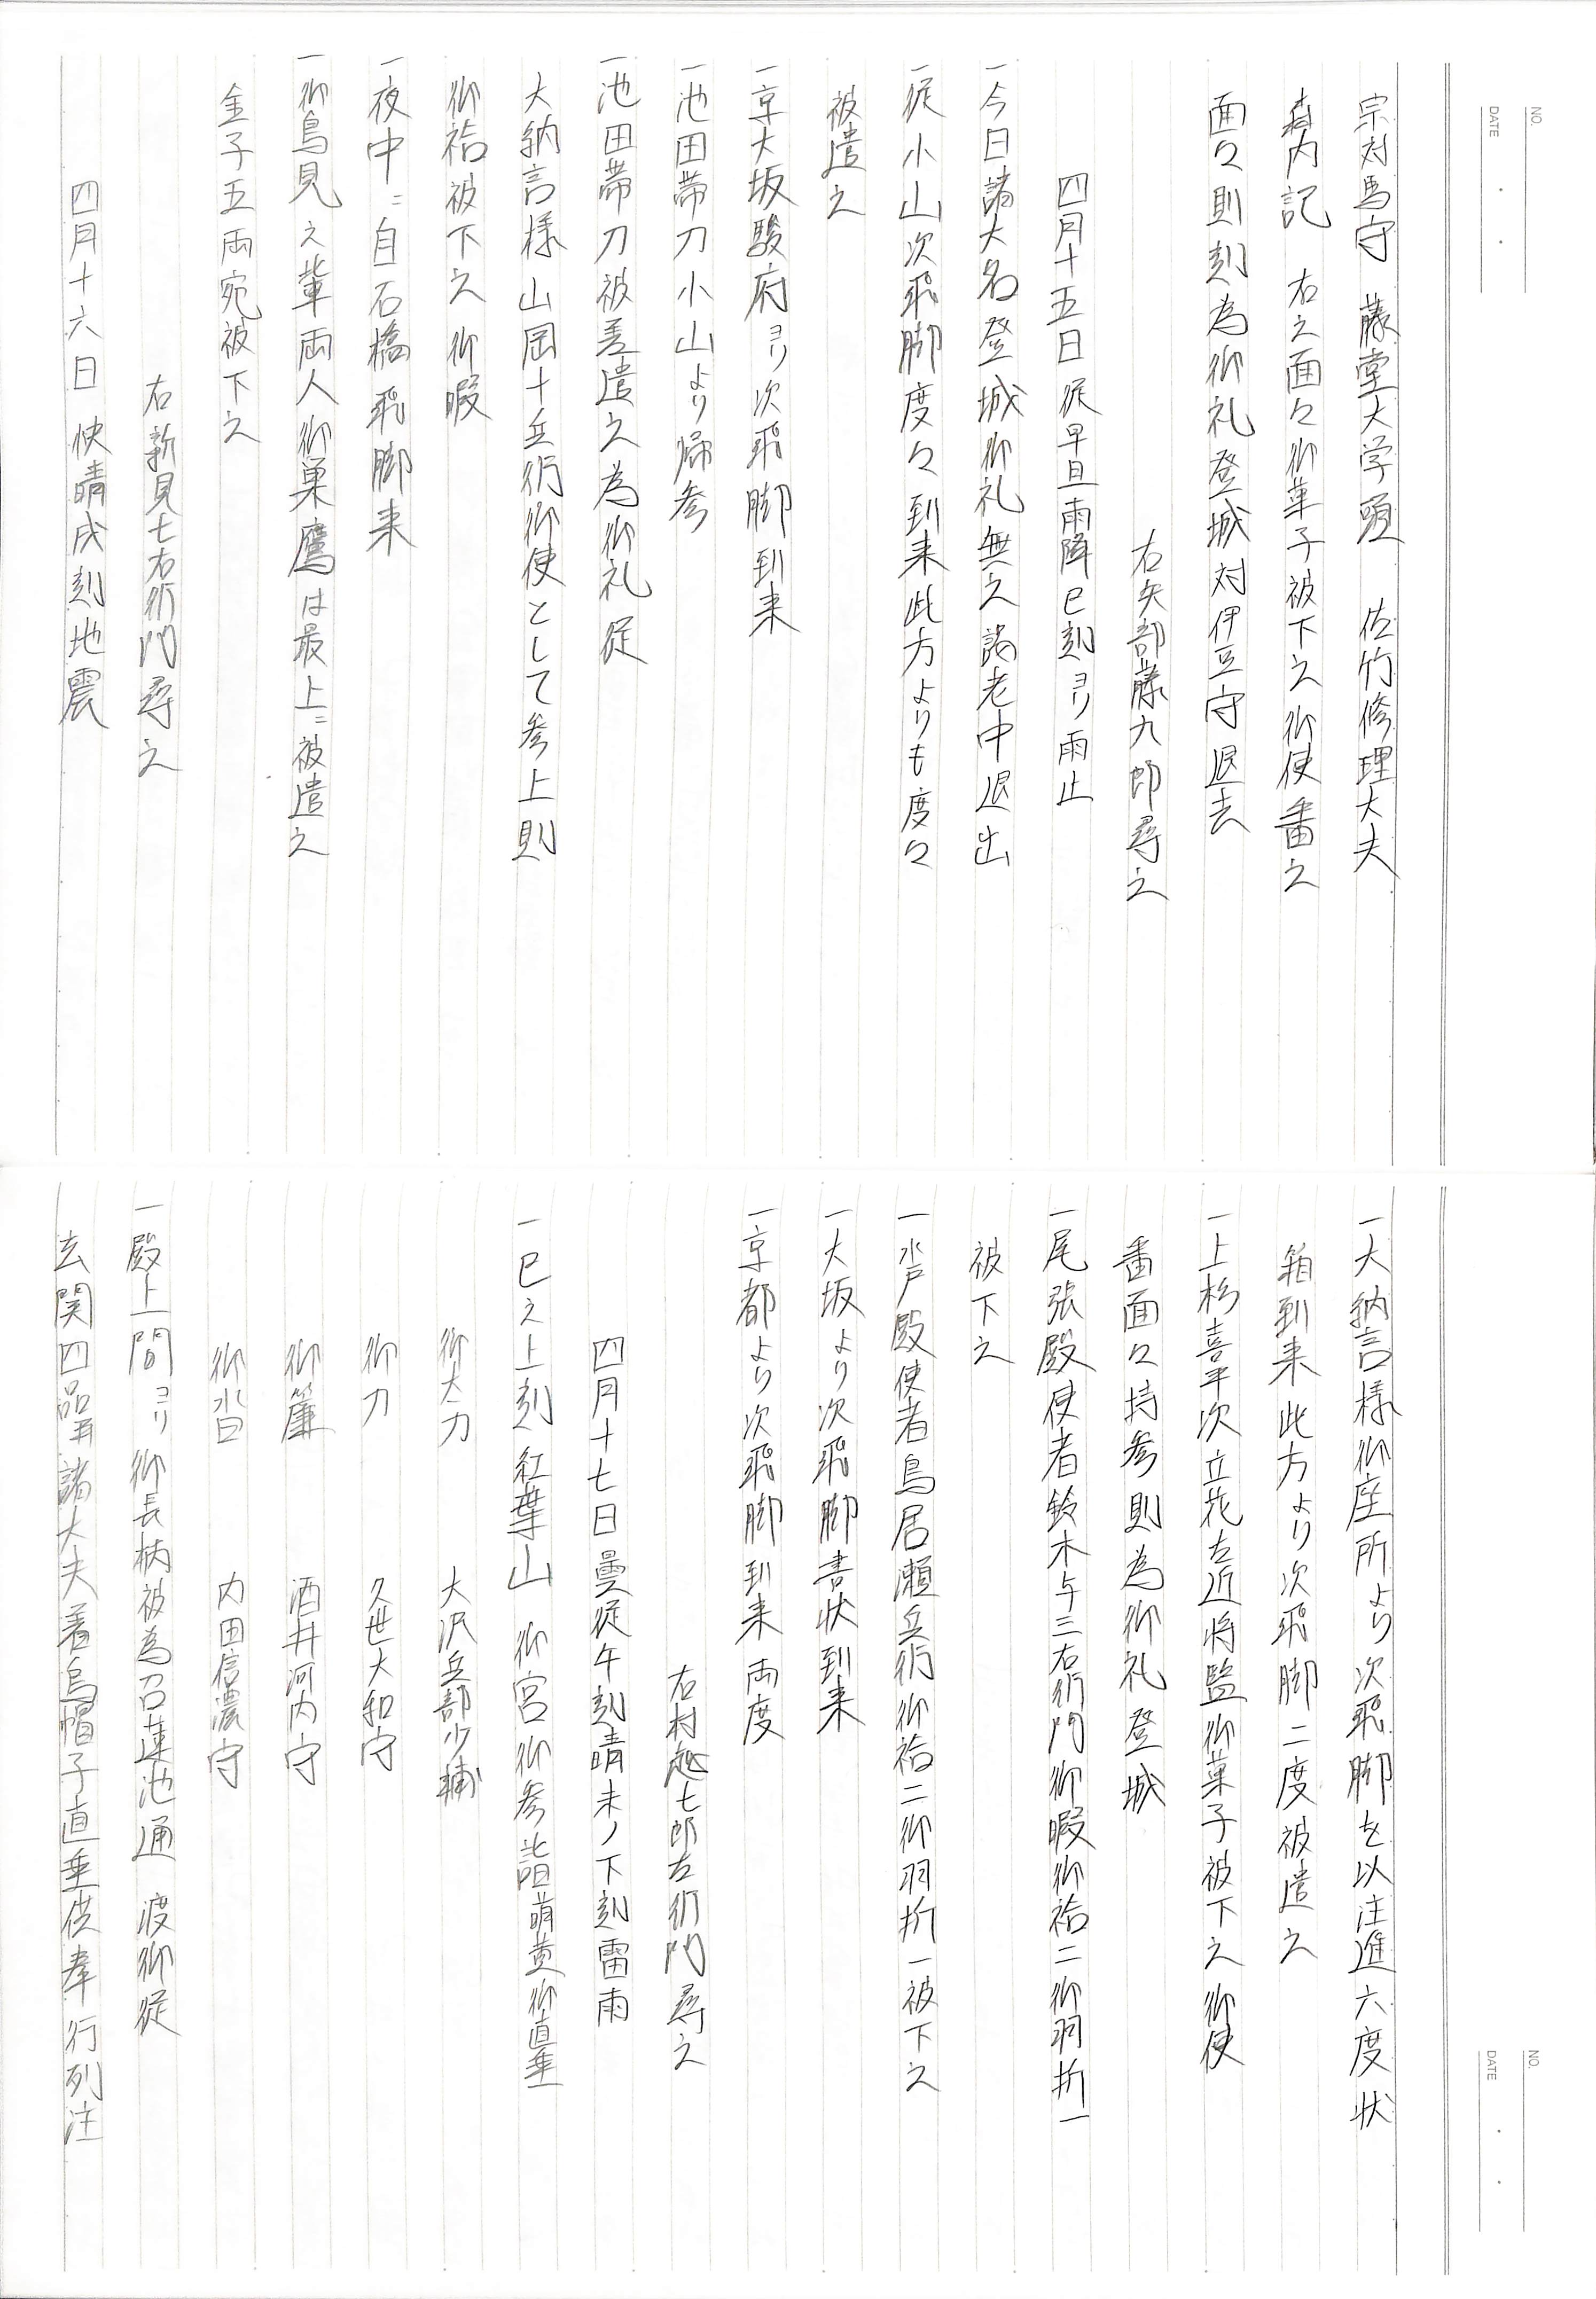 NO.
DATE
宗対馬守　藤堂大学頭　佐竹修理大夫
森内記　右之面々御菓子被下之御使番之
面々則刻為御礼登城対伊豆守退去
右矢部藤九郎尋之
四月十五日従早旦雨降巳刻ヨリ雨止
一今日諸大名登城御礼無之諸老中退出
一従小山次飛脚度々到来此方よりも度々
被遣之
一京大坂駿府ヨリ次飛脚到来
一池田帯刀小山より帰参
一池田帯刀被差遣之為御礼従
大納言様山岡十兵衛御使として参上則
御袷被下之御暇
一夜中ニ自石橋飛脚来
一御鳥見之輩両人御巣鷹は最上ニ被遣之
金子五両宛被下之
右新見七右衛門尋之
四月十六日快晴戌刻地震
NO.
DATE
一大納言様御座所より次飛脚を以注進六度状
箱到来此方より次飛脚二度被遣之
一上杉喜平次立花左近将監御菓子被下之御使
番面々持参則為御礼登城
一尾張殿使者鈴木与三右衛門御暇御袷二御羽折一
被下之
一水戸殿使者鳥居瀬兵衛御袷二御羽折一被下之
一大坂より次飛脚書状到来
一京都より次飛脚到来両度
右村越七郎左衛門尋之
四月十七日曇従午刻晴未ノ下刻雷雨
一巳之上刻紅葉山　御宮御参詣萌黄御直垂
御太刀　大沢兵部少輔
御刀　久世大和守
御簾　酒井河内守
御沓　内田信濃守
一殿上間ヨリ御長柄被為召蓮池通　渡御従
玄関四品并諸大夫着烏帽子直垂供奉行列注